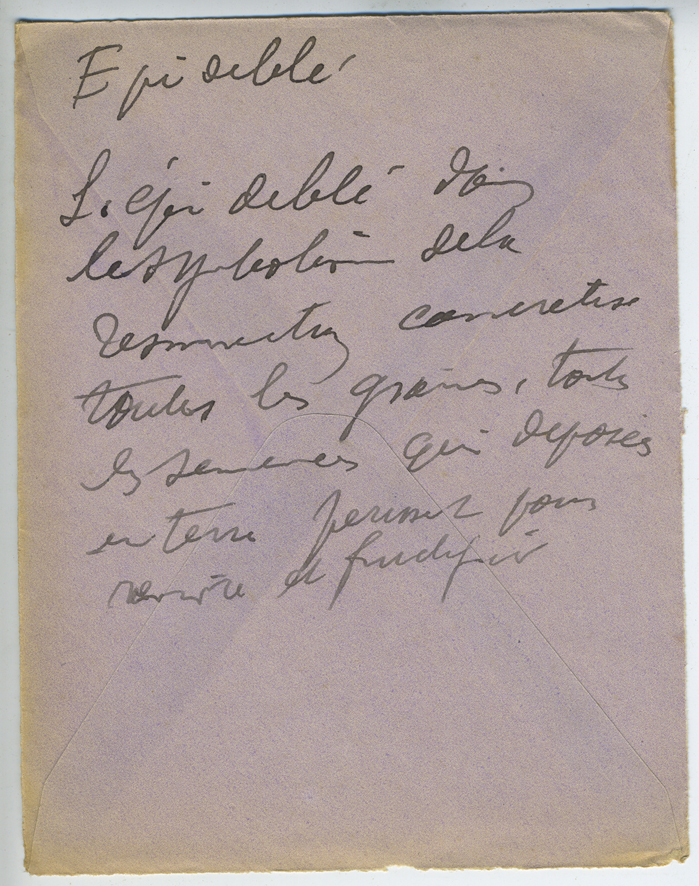 Epi de blé
L'épi de blé dans
le symbolisme de la
résurrection concrétise
toutes les graines, toutes
les semences qui déposées
en terre pour
revivre et fructifier